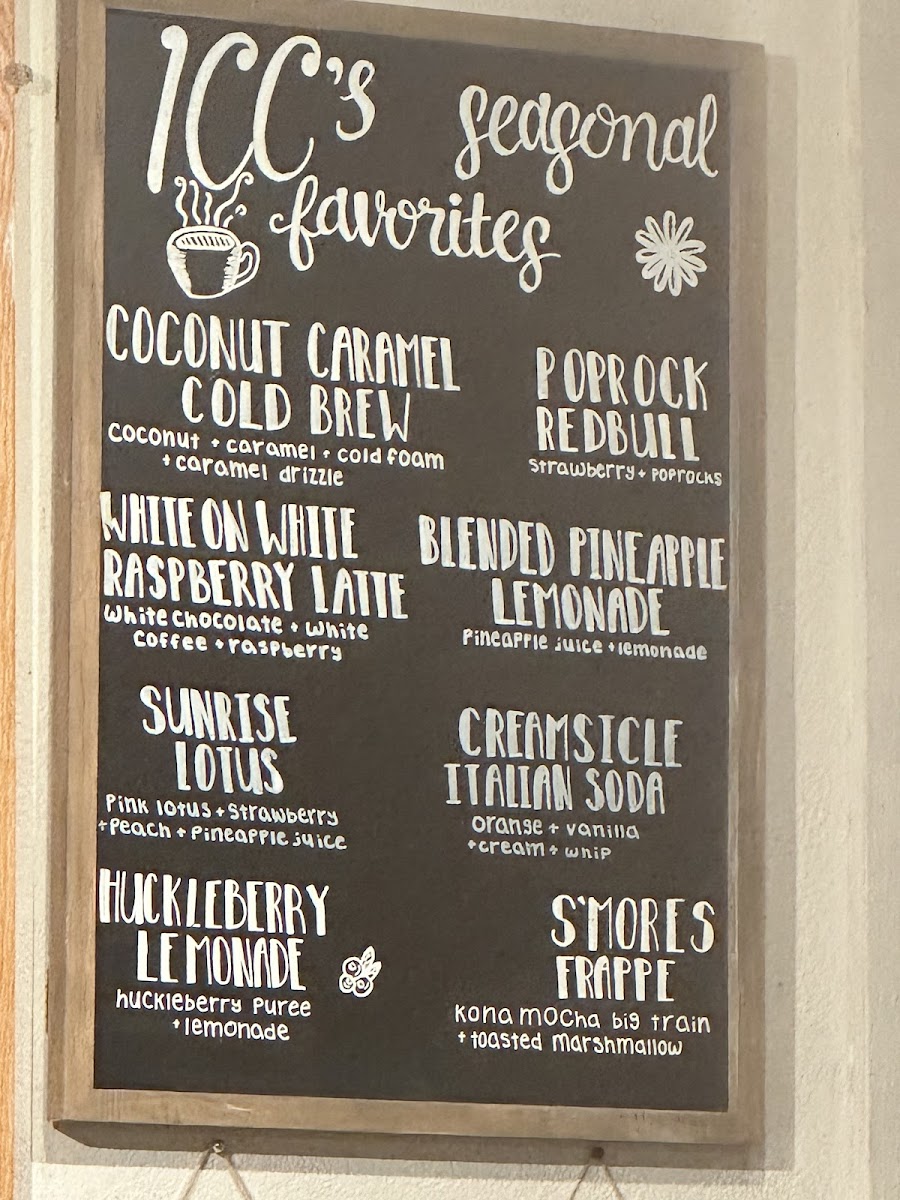 ICC's seasonal
favorites
COCONUT CARAMEL
COLD BREW
coconut + caramel + cold foam
+ caramel drizzle
WHITE ON WHITE
RASPBERRY LATTE
white chocolate + white
coffee + raspberry
SUNRISE
LOTUS
Pink lotus + strawberry
+ Peach + Pineapple juice
HUCKLEBERRY
LEMONADE
huckleberry Puree
+ lemonade
POPROCK
REDBULL
strawberry + POPROCKS
BLENDED PINEAPPLE
LEMONADE
Pineapple juice + lemonade
CREAMSICLE
ITALIAN SODA
orange + vanilla
+ cream + whip
S'MORES
FRAPPE
kona mocha big train
+ toasted marshmallow